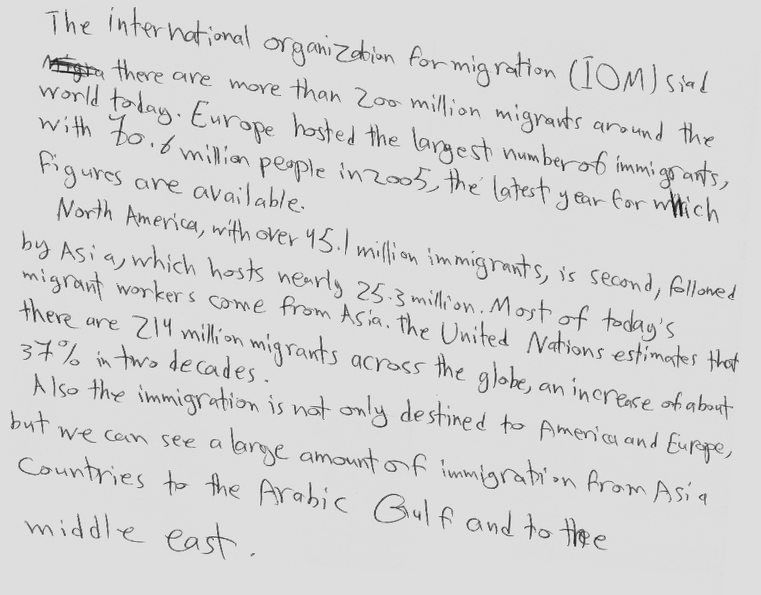 The international organization for migration (IOM) siad
there are more than 200 million migrants around the
world today. Europe hosted the largest number of immigrants,
with 70.6 million people in 2005, the latest year for which
figures are available.
North America, with over 45.1 million immigrants, is second, followed
by Asia, which hosts nearly 25.3 million. Most of today's
migrant workers come from Asia. the United Nations estimates that
there are 214 million migrants across the globe, an increase of about
37% in two decades.
Also the immigration is not only destined to America and Europe,
but we can see a large amount of immigration from Asia
Countries to the Arabic Gulf and to the
middle east.